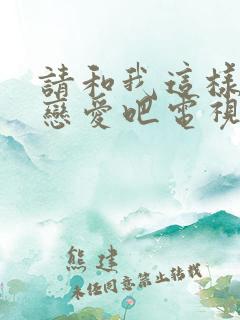 請和我這樣
戀愛吧電視
熊建
未经同意禁止转载